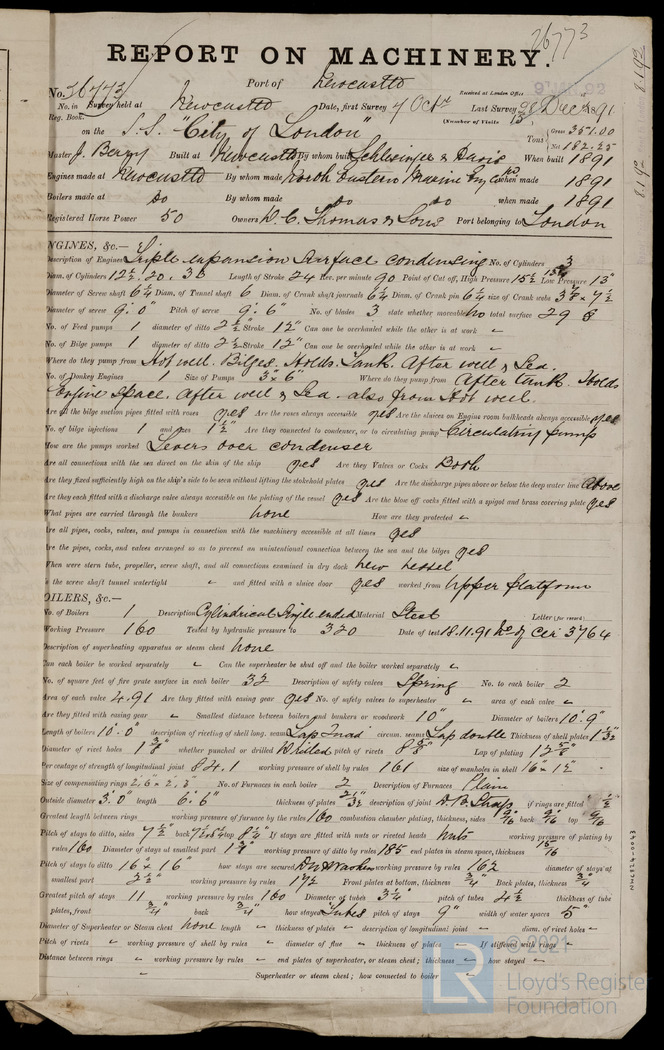 26773
REPORT ON MACHINERY.
No. 26773 Port of Newcastle
Received at London Office
No. in Survey held at Newcastle Date, first Survey 7 Octr Last Survey Dec 1891
Reg. Book. (Number of Visits 13)
on the S.S. "City of London" Tons Gross 351.00
Net 182.25
Master J. Berry Built at Newcastle By whom built Schlesinger & Davis When built 1891
Engines made at Newcastle By whom made North Eastern Marine Eng Co when made 1891
Boilers made at do By whom made do do when made 1891
Registered Horse Power 50 Owners W. C. Thomas & Sons Port belonging to London
NGINES, &c.—
Description of Engines Triple expansion Surface condensing No. of Cylinders 3
Diam. of Cylinders 12½, 20, 33 Length of Stroke 24 Rev. per minute 90 Point of Cut off, High Pressure 15½ Low Pressure 13"
Diameter of Screw shaft 6¼ Diam. of Tunnel shaft 6 Diam. of Crank shaft journals 6¼ Diam. of Crank pin 6¼ size of Crank webs
Diameter of screw 9'. 0" Pitch of screw 9'. 6" No. of blades 3 state whether moveable No total surface 29
No. of Feed pumps 1 diameter of ditto 2½" Stroke 12" Can one be overhauled while the other is at work "
No. of Bilge pumps 1 diameter of ditto 2½" Stroke 12" Can one be overhauled while the other is at work "
Where do they pump from Hot well. Bilges. Holds. Tank. After well & Sea.
No. of Donkey Engines 1 Size of Pumps 3" x 6" Where do they pump from After tank. Holds
Engine Space. After well & Sea. also from Hot well.
Are all the bilge suction pipes fitted with roses yes Are the roses always accessible yes Are the sluices on Engine room bulkheads always accessible yes
No. of bilge injections 1 and sizes 1½" Are they connected to condenser, or to circulating pump Circulating pump
How are the pumps worked Levers over condenser
Are all connections with the sea direct on the skin of the ship yes Are they Valves or Cocks Both
Are they fixed sufficiently high on the ship's side to be seen without lifting the stokehold plates yes Are the discharge pipes above or below the deep water line above
Are they each fitted with a discharge valve always accessible on the plating of the vessel yes Are the blow off cocks fitted with a spigot and brass covering plate yes
What pipes are carried through the bunkers none How are they protected "
Are all pipes, cocks, valves, and pumps in connection with the machinery accessible at all times yes
Are the pipes, cocks, and valves arranged so as to prevent an unintentional connection between the sea and the bilges yes
When were stern tube, propeller, screw shaft, and all connections examined in dry dock new vessel
Is the screw shaft tunnel watertight " and fitted with a sluice door yes worked from Upper platform
OILERS, &c.—
No. of Boilers 1 Description Cylindrical Single ended Material Steel Letter (for record)
Working Pressure 160 Tested by hydraulic pressure to 320 Date of test 18.11.91 No of Cer 3764
Description of superheating apparatus or steam chest none
Can each boiler be worked separately " Can the superheater be shut off and the boiler worked separately "
No. of square feet of fire grate surface in each boiler 32 Description of safety valves Spring No. to each boiler 2
Area of each valve 4.91 Are they fitted with easing gear yes No. of safety valves to superheater " area of each valve "
Are they fitted with easing gear " Smallest distance between boilers and bunkers or woodwork 10" Diameter of boilers 10'. 9"
Length of boilers 10'. 0" description of riveting of shell long. seams Lap Triad circum. seams Lap double Thickness of shell plates
Diameter of rivet holes whether punched or drilled Drilled pitch of rivets Lap of plating
Per centage of strength of longitudinal joint 84.1 working pressure of shell by rules 161 size of manholes in shell 16" x 12"
Size of compensating rings No. of Furnaces in each boiler 2 Description of Furnaces Plain
Outside diameter 3'. 0" length 6'. 6" thickness of plates description of joint D.B. Strap if rings are fitted
Greatest length between rings working pressure of furnace by the rules 160 combustion chamber plating, thickness, sides back top
Pitch of stays to ditto, sides 7½ back top 8¼ If stays are fitted with nuts or riveted heads nuts working pressure of plating by
rules 160 Diameter of stays at smallest part working pressure of ditto by rules 185 end plates in steam space, thickness
Pitch of stays to ditto 16" x 16" how stays are secured D.N Washers working pressure by rules 162 diameter of stays at
smallest part working pressure by rules 172 Front plates at bottom, thickness ¾ Back plates, thickness ¾"
Greatest pitch of stays 11 working pressure by rules 160 Diameter of tubes 3¼" pitch of tubes 4½ thickness of tube
plates, front ¾" back ¾" how stayed Tubes pitch of stays 9" width of water spaces 5"
Diameter of Superheater or Steam chest none length " thickness of plates " description of longitudinal joint " diam. of rivet holes "
Pitch of rivets " working pressure of shell by rules " diameter of flue " thickness of plates " If stiffened with rings "
Distance between rings " working pressure by rules " end plates of superheater, or steam chest; thickness " how stayed "
" Superheater or steam chest; how connected to boiler "
© 2021
LR
Lloyd's Register
Foundation